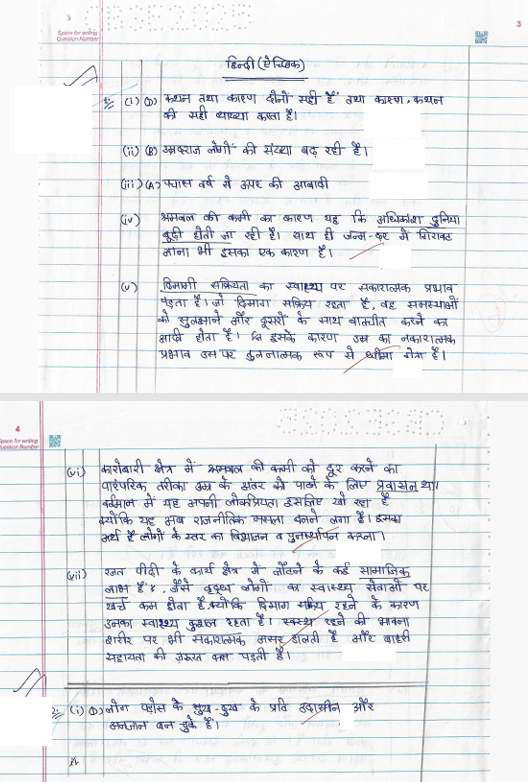 3
Space for writing
Question Number
हिन्दी (ऐच्छिक)
1. (i) (D) कथन तथा कारण दोनों सही हैं तथा कारण, कथन
की सही व्याख्या करता है।
(ii) (B) उम्रदराज लोगों की संख्या बढ़ रही है।
(iii) (A) पचास वर्ष से ऊपर की आबादी
(iv) श्रमबल की कमी का कारण यह कि अधिकांश दुनिया
बूढ़ी होती जा रही है। साथ ही जन्म-दर में गिरावट
आना भी इसका एक कारण है।
(v) दिमागी सक्रियता का स्वास्थ्य पर सकारात्मक प्रभाव
पड़ता है। जो दिमाग सक्रिय रहता है, वह समस्याओं
को सुलझाने और दूसरों के साथ बातचीत करने का
आदी होता है। इसके कारण उम्र का नकारात्मक
प्रभाव उस पर तुलनात्मक रूप से धीमा होता है।
4
Space for writing
Question Number
(vi) कारोबारी क्षेत्र में श्रमबल की कमी को दूर करने का
पारंपरिक तरीका उम्र के अंतर को पाटने के लिए प्रवासन था।
वर्तमान में यह अपनी लोकप्रियता इसलिए खो रहा है
क्योंकि यह अब राजनीतिक मसला बनने लगा है। इसका
अर्थ है लोगों के स्तर का विभाजन व पुनर्स्थापन करना।
(vii) रजत पीढ़ी के कार्य क्षेत्र में लौटने के कई सामाजिक
लाभ हैं, जैसे वृद्ध लोगों का स्वास्थ्य सेवाओं पर
खर्च कम होता है क्योंकि दिमाग सक्रिय रहने के कारण
उनका स्वास्थ्य कुशल रहता है। स्वस्थ रहने की भावना
शरीर पर भी सकारात्मक असर डालती है और बाहरी
सहायता की ज़रूरत कम पड़ती है।
2. (i) (D) लोग पड़ोस के सुख-दुख के प्रति उदासीन और
अनजान बन चुके हैं।